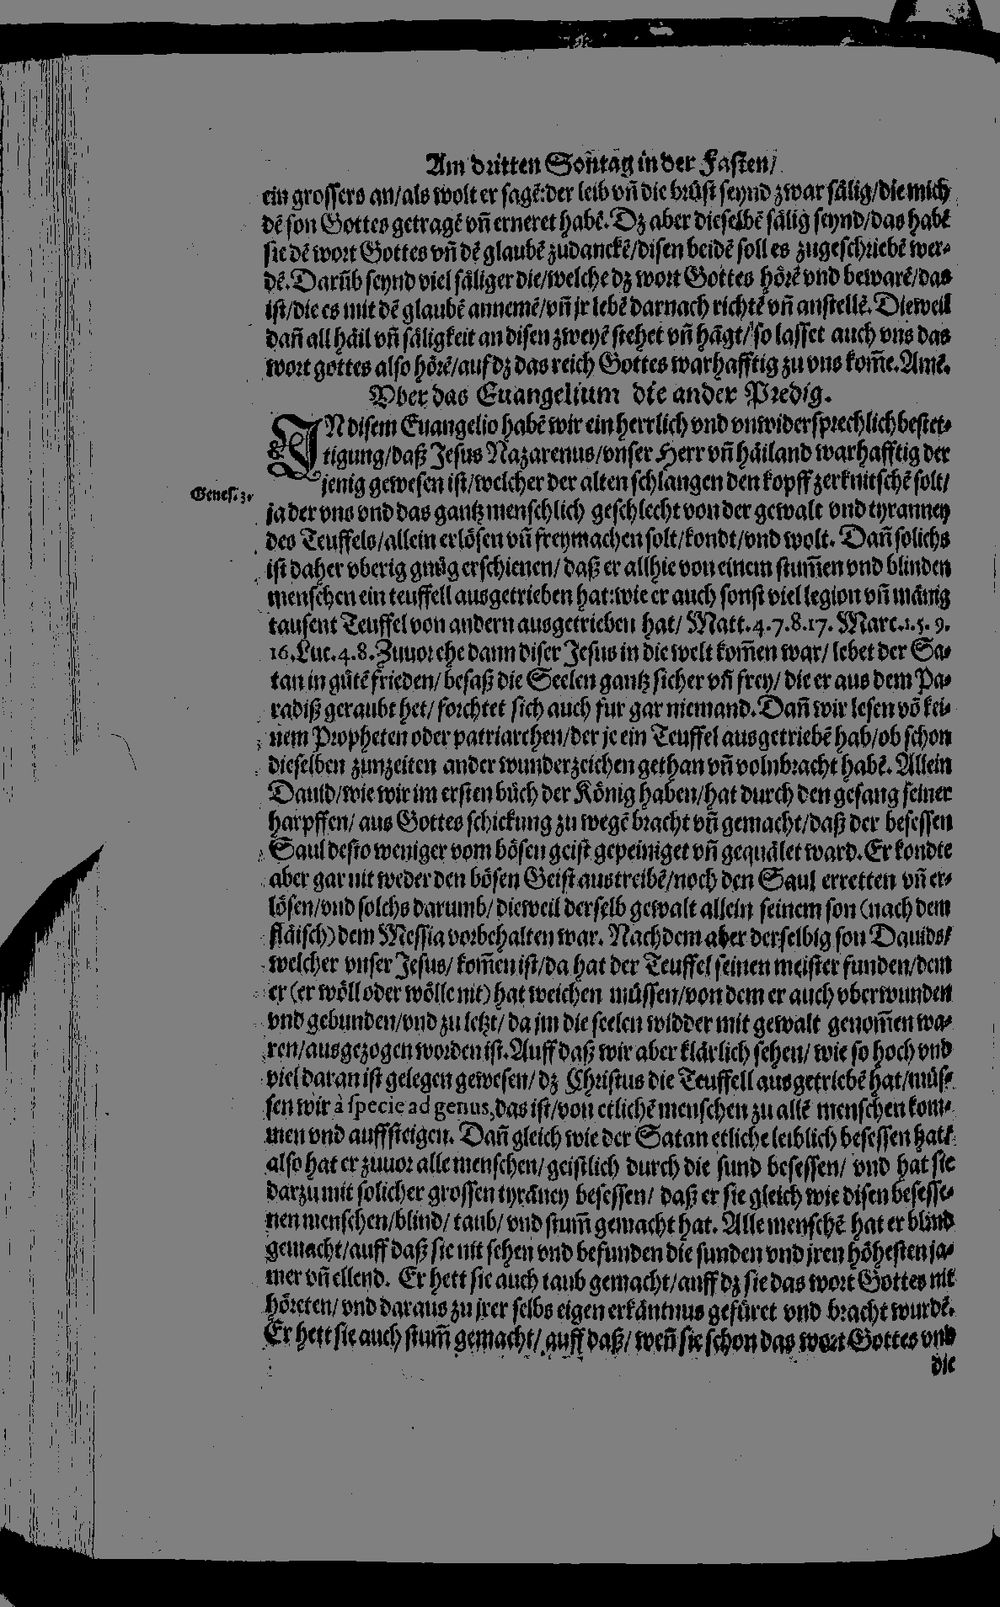 Am dritten Soñtag in der Fasten/
ein grossers an/als wolt er sagē:der leib vñ die brüst seynd zwar sälig/die mich
dē son Gottes getragē vñ erneret habē. Dz aber dieselbē sälig seynd/das habē
sie dē wort Gottes vñ dē glaubē zudanckē/disen beidē soll es zugeschriebē wer-
dē. Darũb seynd viel säliger die/welche dz wort Gottes hörē vnd bewarē/das
ist/die es mit dē glaubē annemē/vñ jr lebē darnach richtē vñ anstellē. Dieweil
dañ all häil vñ säligkeit an disen zweyē stehet vñ hāgt/ so lasset auch vns das
wort gottes also hörē/auf dz das reich Gottes warhafftig zu vns kom̃e. Amē.
Vber das Euangelium die ander Predig.
IN disem Euangelio habē wir ein herrlich vnd vnwidersprechlich bestet-
tigung/daß Jesus Nazarenus/vnser Herr vñ häiland warhafftig der
jenig gewesen ist/welcher der alten schlangen den kopff zerknitschē solt/
Genes. 3.
ja der vns vnd das gantz menschlich geschlecht von der gewalt vnd tyranney
des Teuffels/allein erlösen vñ freymachen solt/kondt/vnd wolt. Dañ solichs
ist daher vberig gnůg erschienen/ daß er allhie von einem stum̃en vnd blinden
menschen ein teuffell ausgetrieben hat:wie er auch sonst viel legion vñ mänig
tausent Teuffel von andern ausgetrieben hat/ Matt. 4. 7. 8. 17. Marc. 1. 5. 9.
16. Luc. 4. 8. Zuuor ehe dann diser Jesus in die welt kom̃en war/ lebet der Sa-
tan in gůtē frieden/ besaß die Seelen gantz sicher vñ frey/ die er aus dem Pa-
radiß geraubt het/ forchtet sich auch fur gar niemand. Dañ wir lesen vō kei-
nem Propheten oder patriarchen/der je ein Teuffel ausgetriebē hab/ob schon
dieselben zunzeiten ander wunderzeichen gethan vñ volnbracht habē. Allein
Dauid/wie wir im ersten bůch der König haben/hat durch den gesang seiner
harpffen/ aus Gottes schickung zu wegē bracht vñ gemacht/daß der besessen
Saul desto weniger vom bösen geist gepeiniget vñ gequälet ward. Er kondte
aber gar nit weder den bösen Geist austreibē/noch den Saul erretten vñ er-
lösen/vnd solchs darumb/ dieweil derselb gewalt allein seinem son (nach dem
fläisch) dem Messia vorbehalten war. Nachdem aber derselbig son Dauids/
welcher vnser Jesus/ kom̃en ist/da hat der Teuffel seinen meister funden/dem
er (er wöll oder wölle nit) hat weichen müssen/von dem er auch vberwunden
vnd gebunden/vnd zu letzt/ da jm die seelen widder mit gewalt genom̃en wa-
ren/ausgezogen worden ist. Auff daß wir aber klärlich sehen/ wie so hoch vnd
viel daran ist gelegen gewesen/ dz Christus die Teuffell ausgetriebē hat/müs-
sen wir à specie ad genus, das ist/von etlichē menschen zu allē menschen kom-
men vnd auffsteigen. Dañ gleich wie der Satan etliche leiblich besessen hatt
also hat er zuuor alle menschen/ geistlich durch die sund besessen/ vnd hat sie
darzu mit solicher grossen tyrāney besessen/ daß er sie gleich wie disen besesse-
nen menschen/blind/ taub/ vnd stum̃ gemacht hat. Alle menschē hat er blind
gemacht/auff daß sie nit sehen vnd befunden die sunden vnd jren höhesten ja-
mer vñ ellend. Er hett sie auch taub gemacht/auff dz sie das wort Gottes nit
höreten/ vnd daraus zu jrer selbs eigen erkäntnus gefüret vnd bracht wurdē.
Er hett sie auch stum̃ gemacht/ auff daß/ weñ sie schon das wort Gottes vnd
die